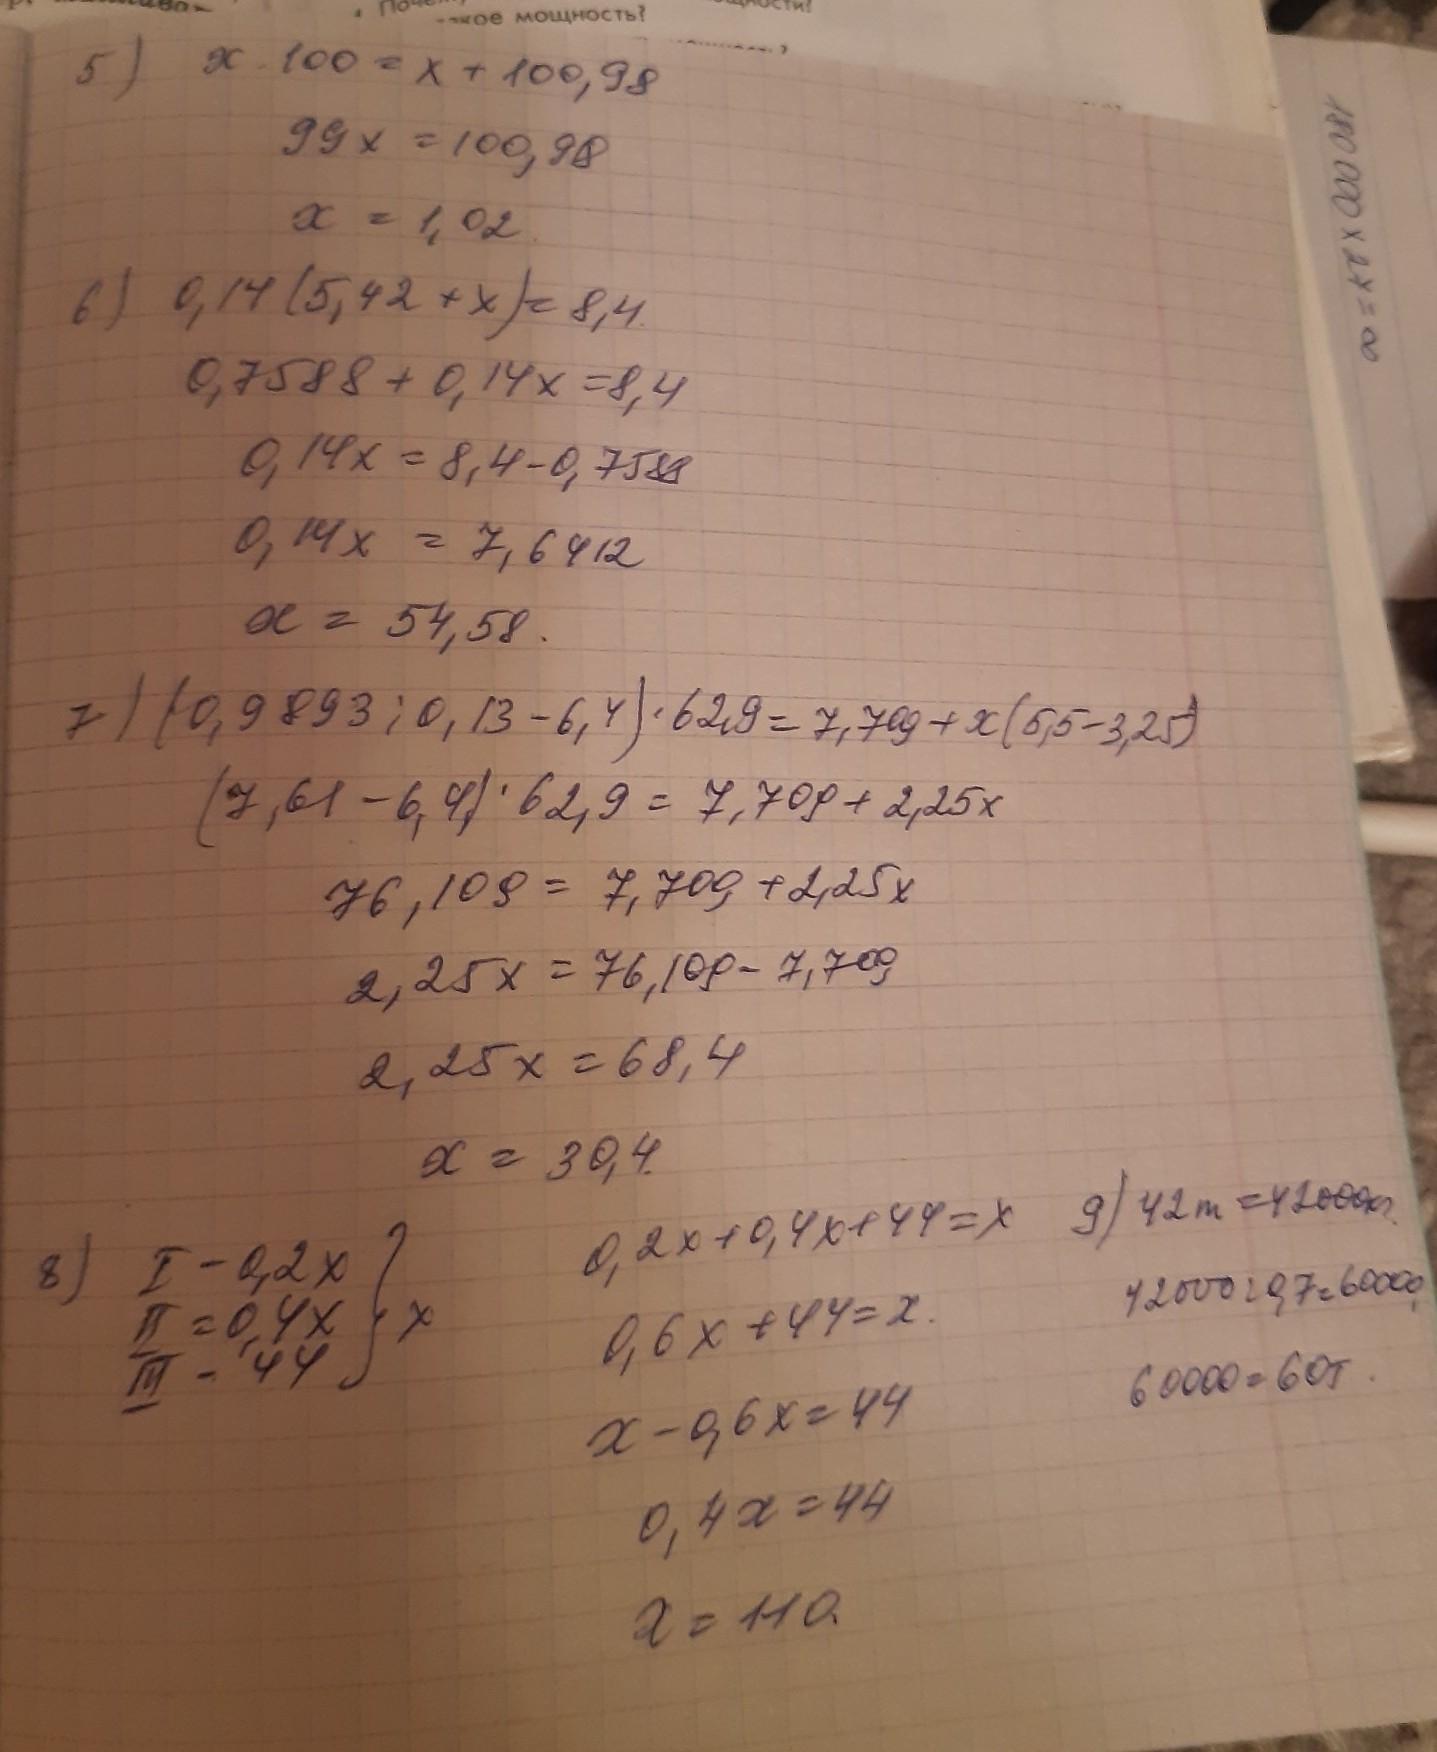 мощность?
5) x · 100 = x + 100,98
99x = 100,98
x = 1,02
6) 0,14(5,42 + x) = 8,4
0,7588 + 0,14x = 8,4
0,14x = 8,4 - 0,7588
0,14x = 7,6412
x = 54,58.
7) (0,9893 : 0,13 - 6,4) · 62,9 = 7,709 + x(5,5 - 3,25)
(7,61 - 6,4) · 62,9 = 7,709 + 2,25x
76,109 = 7,709 + 2,25x
2,25x = 76,109 - 7,709
2,25x = 68,4
x = 30,4
8) I - 0,2x
II = 0,4x } x
III - 44
0,2x + 0,4x + 44 = x
0,6x + 44 = x.
x - 0,6x = 44
0,4x = 44
x = 110
9) 42т = 42000кг.
42000 : 0,7 = 60000
60000 = 60т.